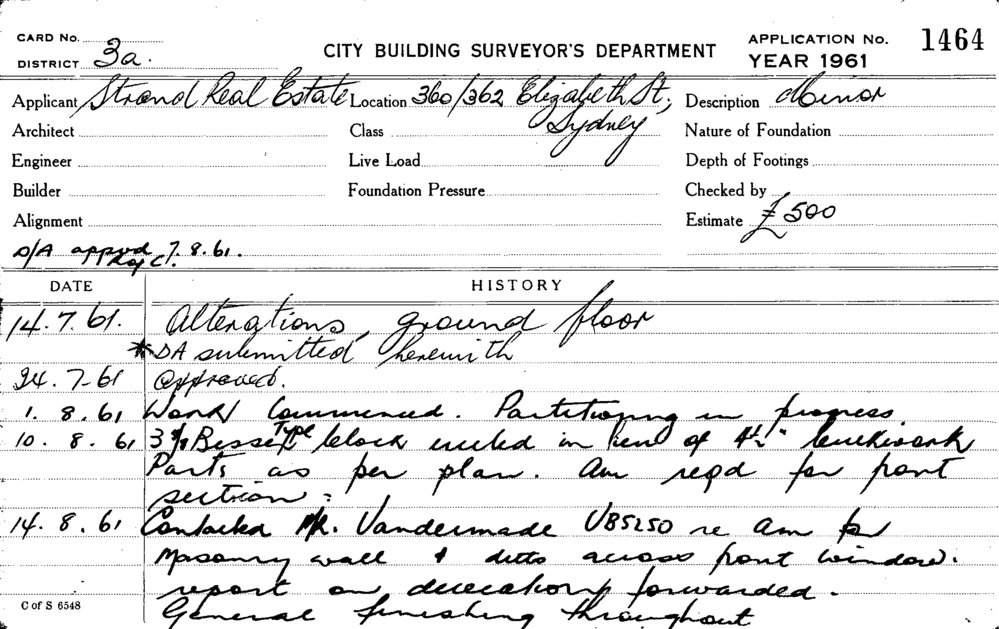 CARD No.
DISTRICT 3a.
CITY BUILDING SURVEYOR'S DEPARTMENT
APPLICATION No. 1464
YEAR 1961
Applicant Strand Real Estate Location 360/362 Elizabeth St, Description Minor
Sydney
Architect Class Nature of Foundation
Engineer Live Load Depth of Footings
Builder Foundation Pressure Checked by
Alignment Estimate £500
D/A apprvd 7.8.61.
DATE HISTORY
14.7.61. Alterations, ground floor
*DA submitted herewith
24.7-61 Approved.
1.8.61 Work Commenced. Partitioning in progress
10.8.61 Besser Type block erected in lieu of 4½" brickwork
Parts as per plan. Am reqd for front
section.
14.8.61 Contacted Mr. Vandermade UB5250 re am for
Masonry wall & ditto across front window.
report on forwarded.
General finishing throughout
C of S 6548